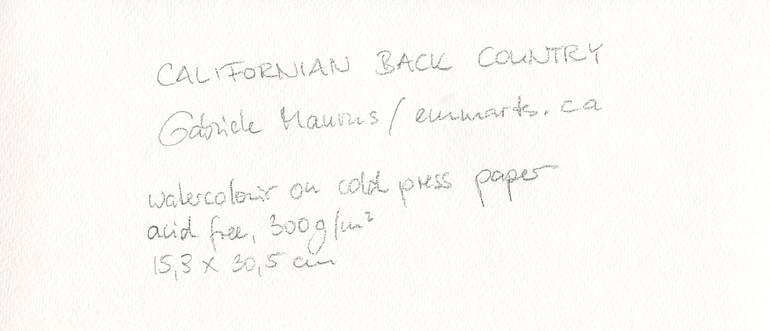 CALIFORNIAN BACK COUNTRY
Gabriele Maurus / emmarts.ca
watercolour on cold press paper
acid free, 300g/m²
15,3 x 30,5 cm